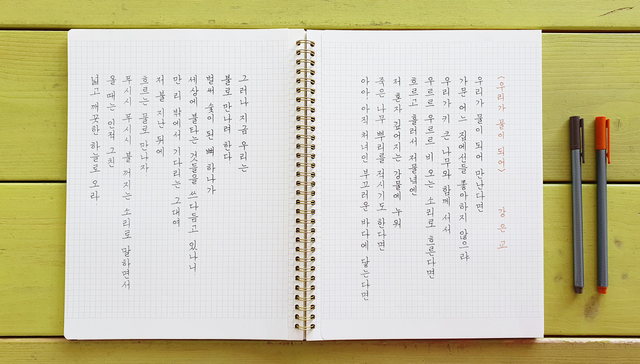 (우리가 물이 되어) 강은교
우리가 물이 되어 만난다면
가문 어느 집에선들 좋아하지 않으랴
우리가 키 큰 나무와 함께 서서
우르르 우르르 비 오는 소리로 흐른다면
흐르고 흘러서 저물녘엔
저 혼자 깊어지는 강물에 누워
죽은 나무 뿌리를 적시기도 한다면
아아 아직 처녀인 부끄러운 바다에 닿는다면
그러나 지금 우리는
불로 만나려 한다
벌써 숯이 된 뼈 하나가
세상에 불타는 것들을 쓰다듬고 있나니
만 리 밖에서 기다리는 그대여
저 불 지난 뒤에
흐르는 물로 만나자
푸시시 푸시시 불 꺼지는 소리로 말하면서
올 때는 인적 그친
넓고 깨끗한 하늘로 오라